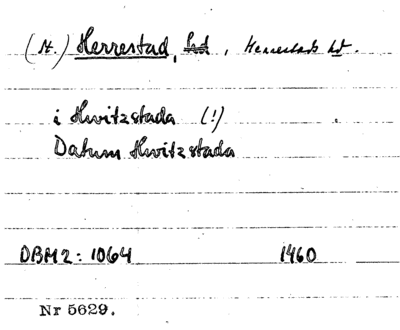 (St.) Herrestad, hd, Herrestads hd.
i Hwitzstada (!)
Datum Hwitzstada
DBM2: 1064 1460
Nr 5629.